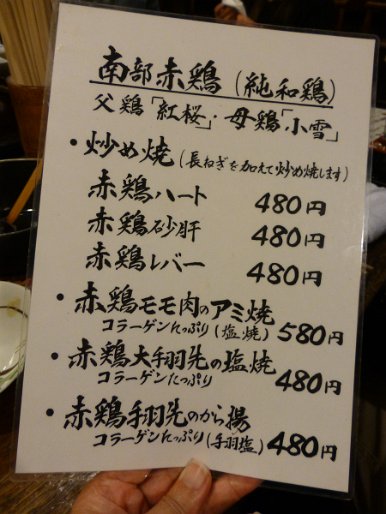 南部赤鶏(純和鶏)
父鶏「紅桜」・母鶏「小雪」
・炒め焼(長ねぎを加えて炒め焼します)
赤鶏ハート 480円
赤鶏砂肝 480円
赤鶏レバー 480円
・赤鶏モモ肉のアミ焼
コラーゲンたっぷり(塩焼) 580円
・赤鶏大手羽先の塩焼
コラーゲンたっぷり 480円
・赤鶏手羽先のから揚
コラーゲンたっぷり(手羽塩) 480円